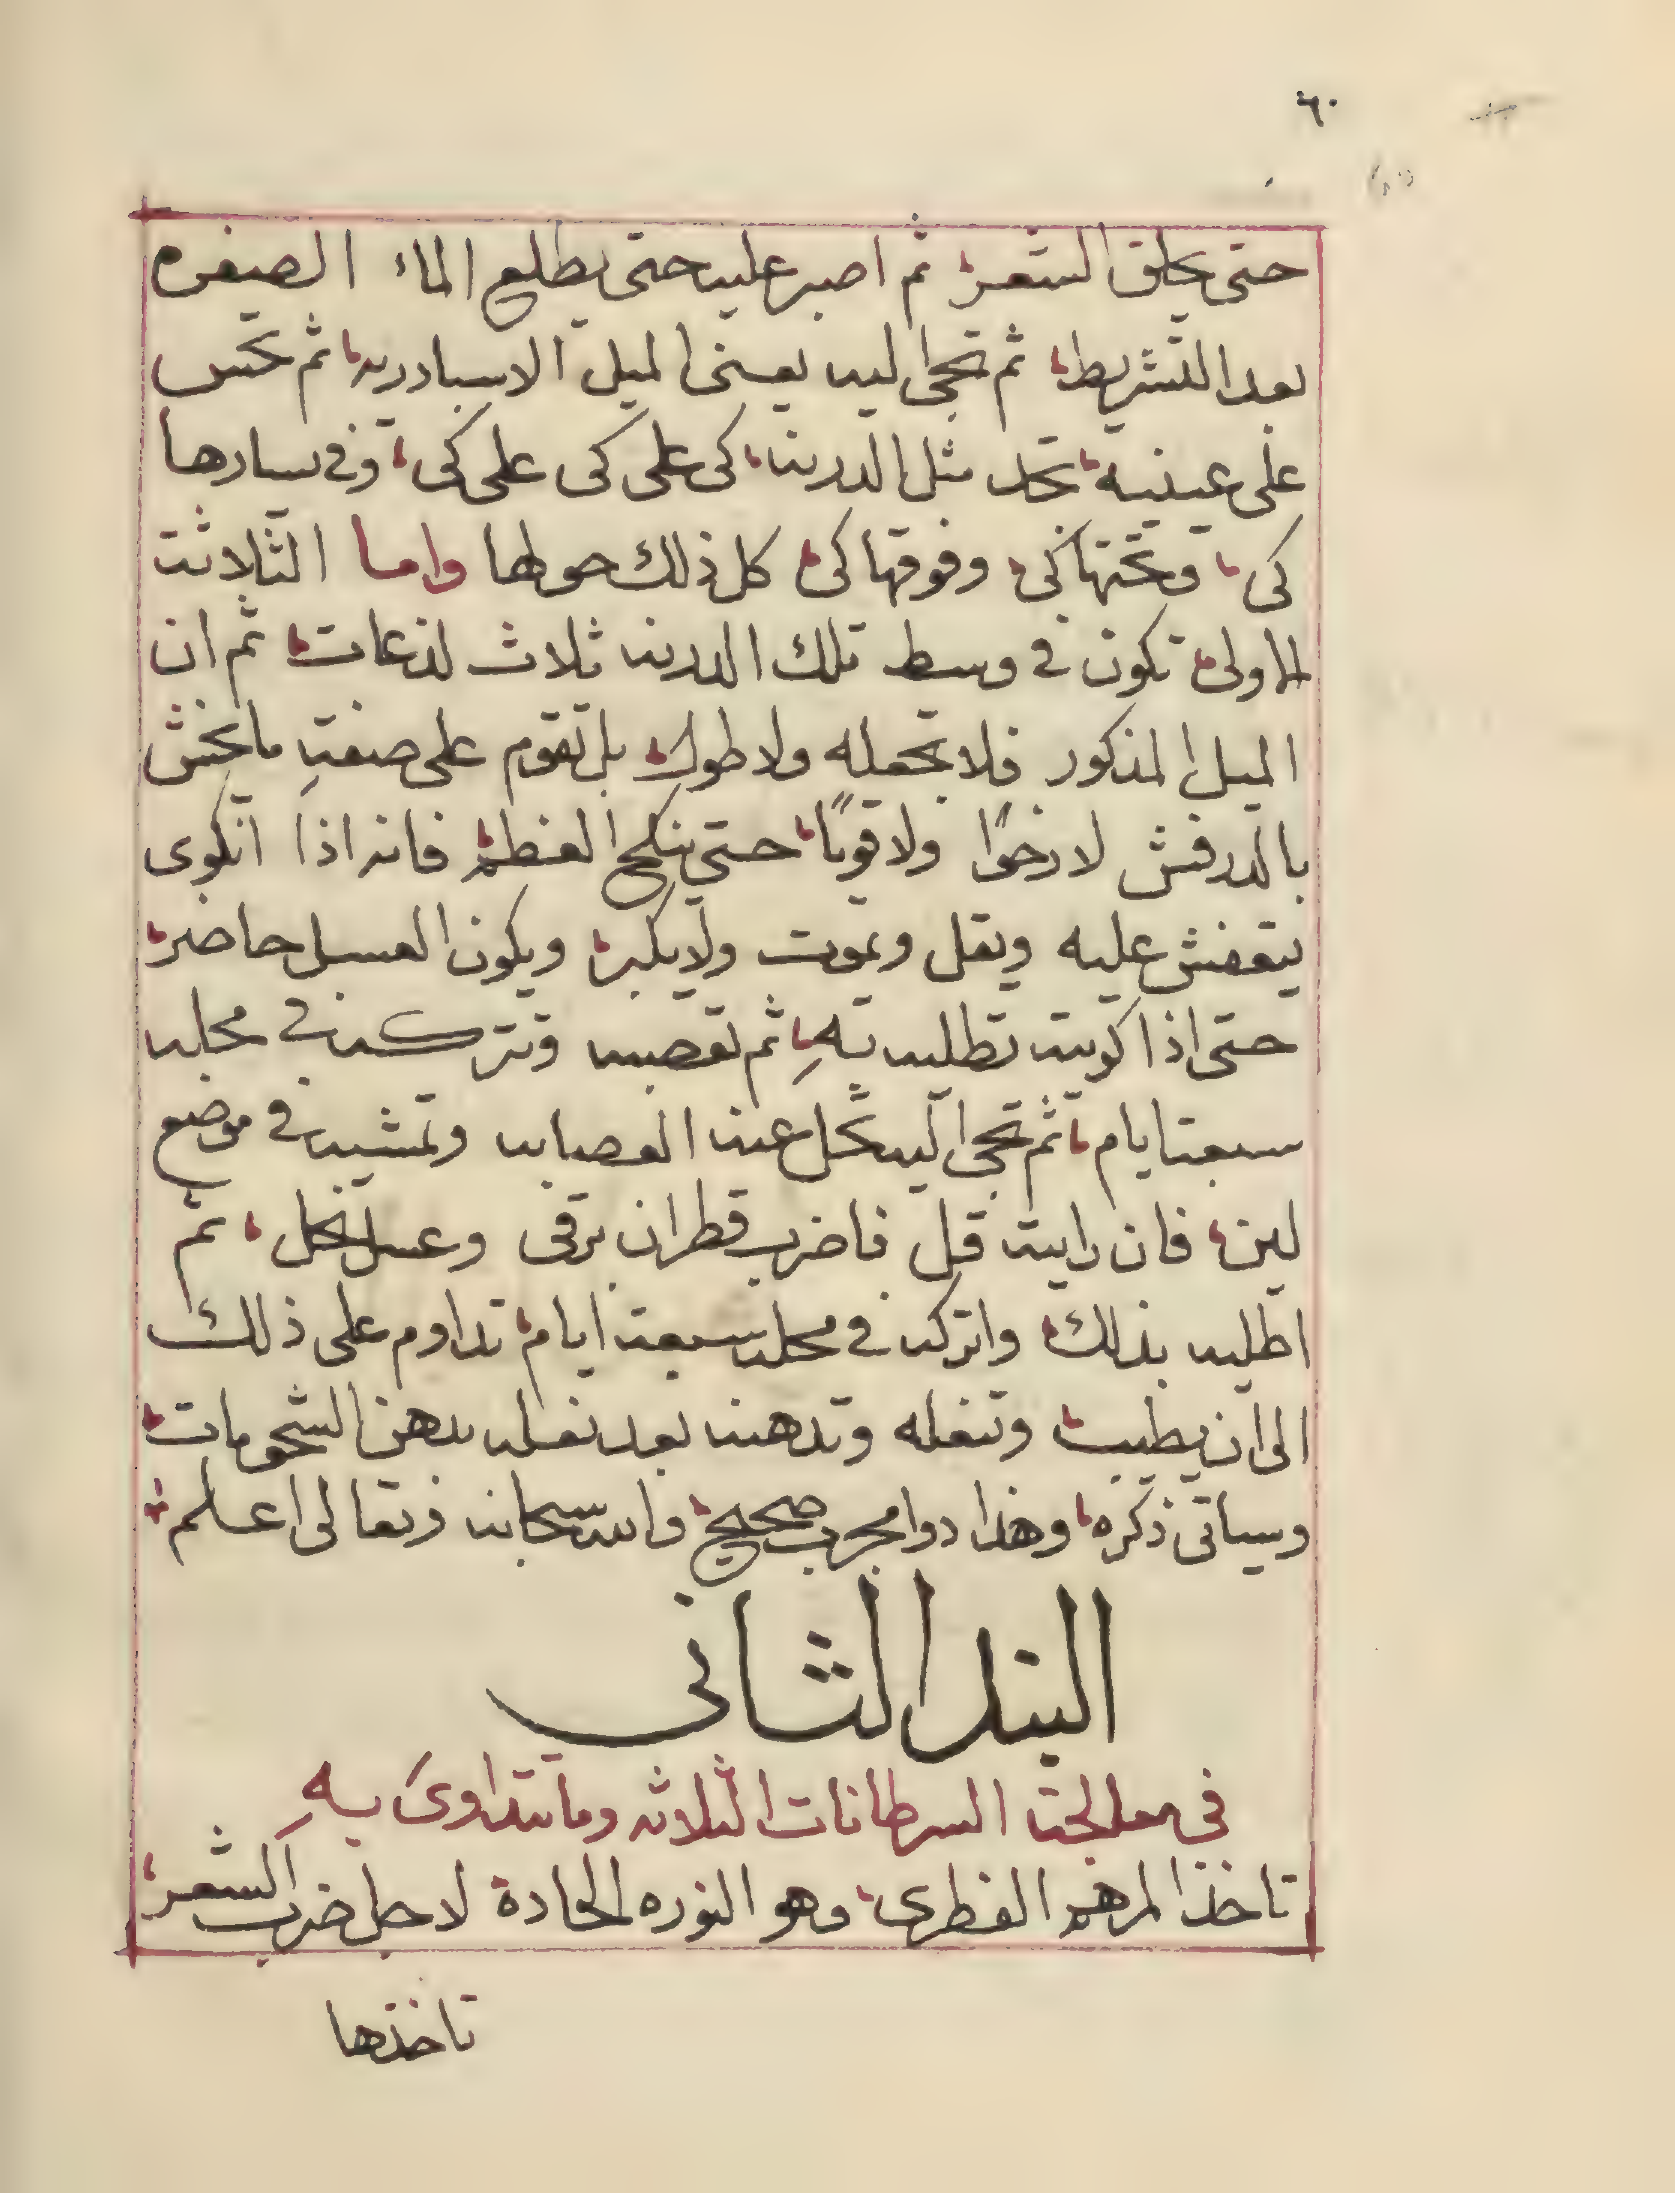 ٦٠
حتى يحلق الشعر ثم اصبر عليه حتى يطلع الماء الصفره
بعد التشريط ثم تجى اليه يعنى الميل الاسبادريه ثم تحس
على عينيه تجد مثل الدرنه كى على كى على كى وفى يسارها
كى وتحتها كى وفوقها كى كل ذلك حولها واما الثلاثت
الاولى تكون فى وسط تلك الدرنه ثلاث لذعات ثم ان
الميل المذكور فلا تجعله ولا طويل بل تقوم على صفتِ ما يخش
بالدرفش لا رخوًا ولا قويًا حتى ينكح العظم فانه اذا انكوى
يتعفش عليه ويقل ويموت ولا يكبر ويكون العسل حاضر
حتى اذا كويته تطليه بهِ ثم تعصبه وتتركه فى محله
سبعة ايام ثم تجى اليه تحل عنه العصابه وتمشيه فى موضع
لين فان رايته قل فاضرب قطران برقى وعسل نحل ثم
اطليه بذلك واتركه فى محله سبعة ايام تداوم على ذلك
الى ان يطيب وتنعله وتدهنه بعد نعله بدهن الشحومات
وسياتى ذكره وهذا دوا مجرب صحيح والله سبحانه وتعالى اعلم
البند الثانى
فى معالجت السرطانات الثلاثه وما تتداوى بهِ
تاخذ المرهم الفطرى وهو النوره الحادة لاجل ضرب الشعر
تاخذها